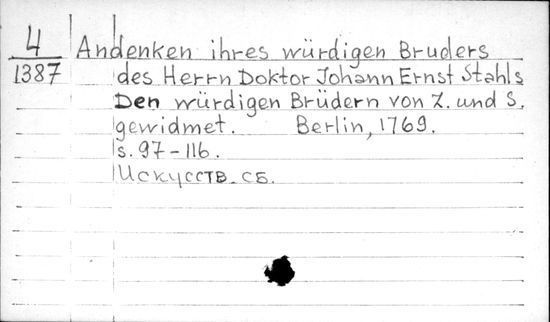 4
1387
Andenken ihres würdigen Bruders
des Herrn Doktor Johann Ernst Stahls
Den würdigen Brüdern von Z. und S.
gewidmet. Berlin, 1769.
S. 97-116.
Искусств. сб.